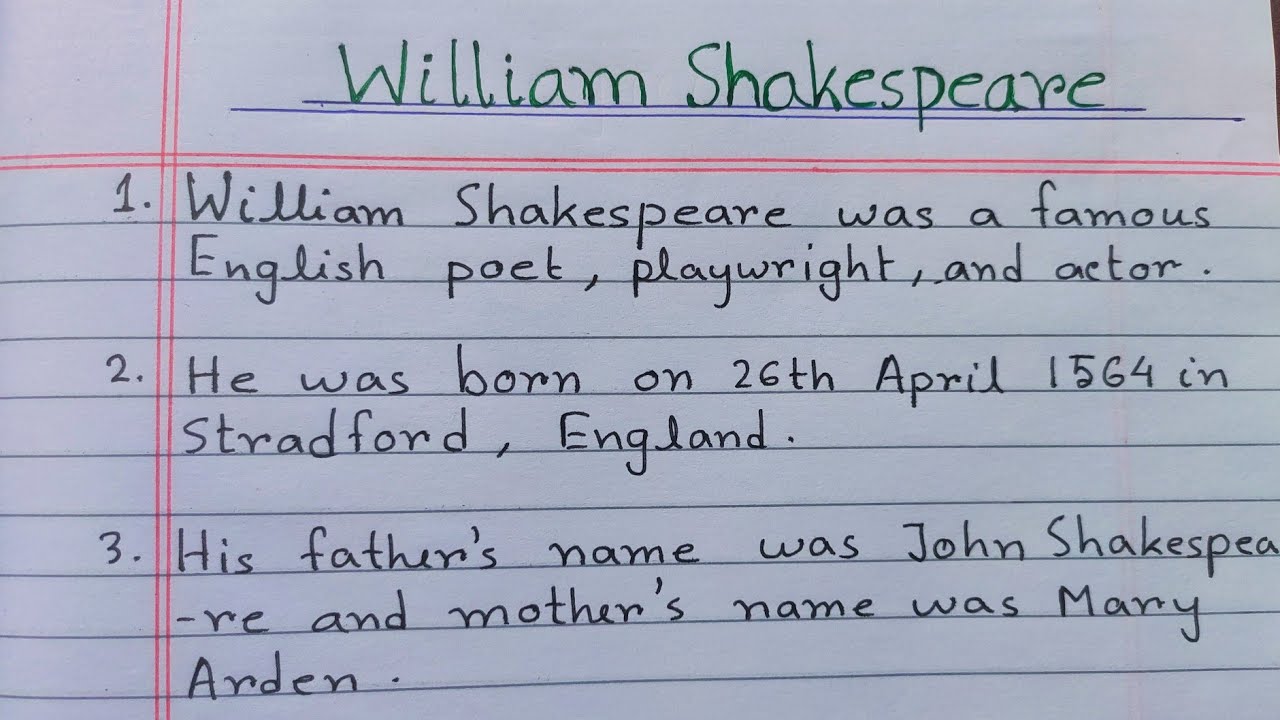 William Shakespeare
1. William Shakespeare was a famous
English poet, playwright, and actor.
2. He was born on 26th April 1564 in
Stradford, England.
3. His father's name was John Shakespea
-re and mother's name was Mary
Arden.